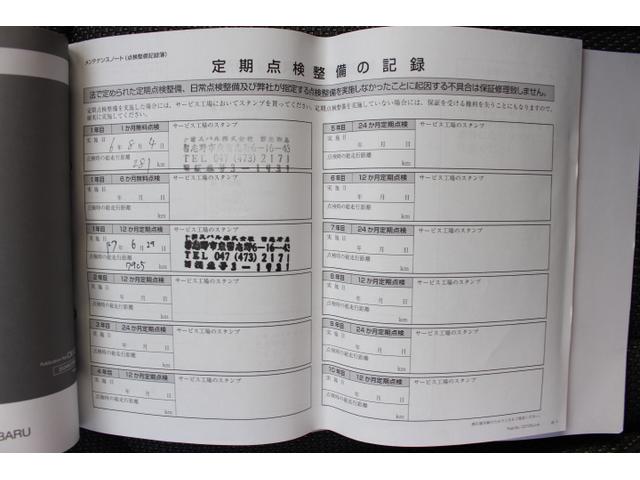 メンテナンスノート(点検整備記録簿)
定期点検整備の記録
法で定められた定期点検整備、日常点検整備及び弊社が指定する点検整備を実施しなかったことに起因する不具合は保証修理致しません。
定期点検整備を実施した場合には、サービス工場においてスタンプを貰ってください。定期点検整備を実施していない場合には、保証を受ける権利を失うことにもなりますので、
確実に実施してください。
1年目 1か月無料点検 サービス工場のスタンプ
実施日
6年 8月 4日
点検時の総走行距離
281 km
TEL 047 (473) 2171
1年目 6か月無料点検 サービス工場のスタンプ
実施日
年 月 日
点検時の総走行距離
km
1年目 12か月定期点検 サービス工場のスタンプ
実施日
年 6月 29日
点検時の総走行距離
7905 km
TEL 047 (473) 2171
2年目 12か月定期点検 サービス工場のスタンプ
実施日
年 月 日
点検時の総走行距離
km
3年目 24か月定期点検 サービス工場のスタンプ
実施日
年 月 日
点検時の総走行距離
km
4年目 12か月定期点検 サービス工場のスタンプ
実施日
年 月 日
点検時の総走行距離
km
5年目 24か月定期点検 サービス工場のスタンプ
実施日
年 月 日
点検時の総走行距離
km
6年目 12か月定期点検 サービス工場のスタンプ
実施日
年 月 日
点検時の総走行距離
km
7年目 24か月定期点検 サービス工場のスタンプ
実施日
年 月 日
点検時の総走行距離
km
8年目 12か月定期点検 サービス工場のスタンプ
実施日
年 月 日
点検時の総走行距離
km
9年目 24か月定期点検 サービス工場のスタンプ
実施日
年 月 日
点検時の総走行距離
km
10年目 12か月定期点検 サービス工場のスタンプ
実施日
年 月 日
点検時の総走行距離
km
BARU